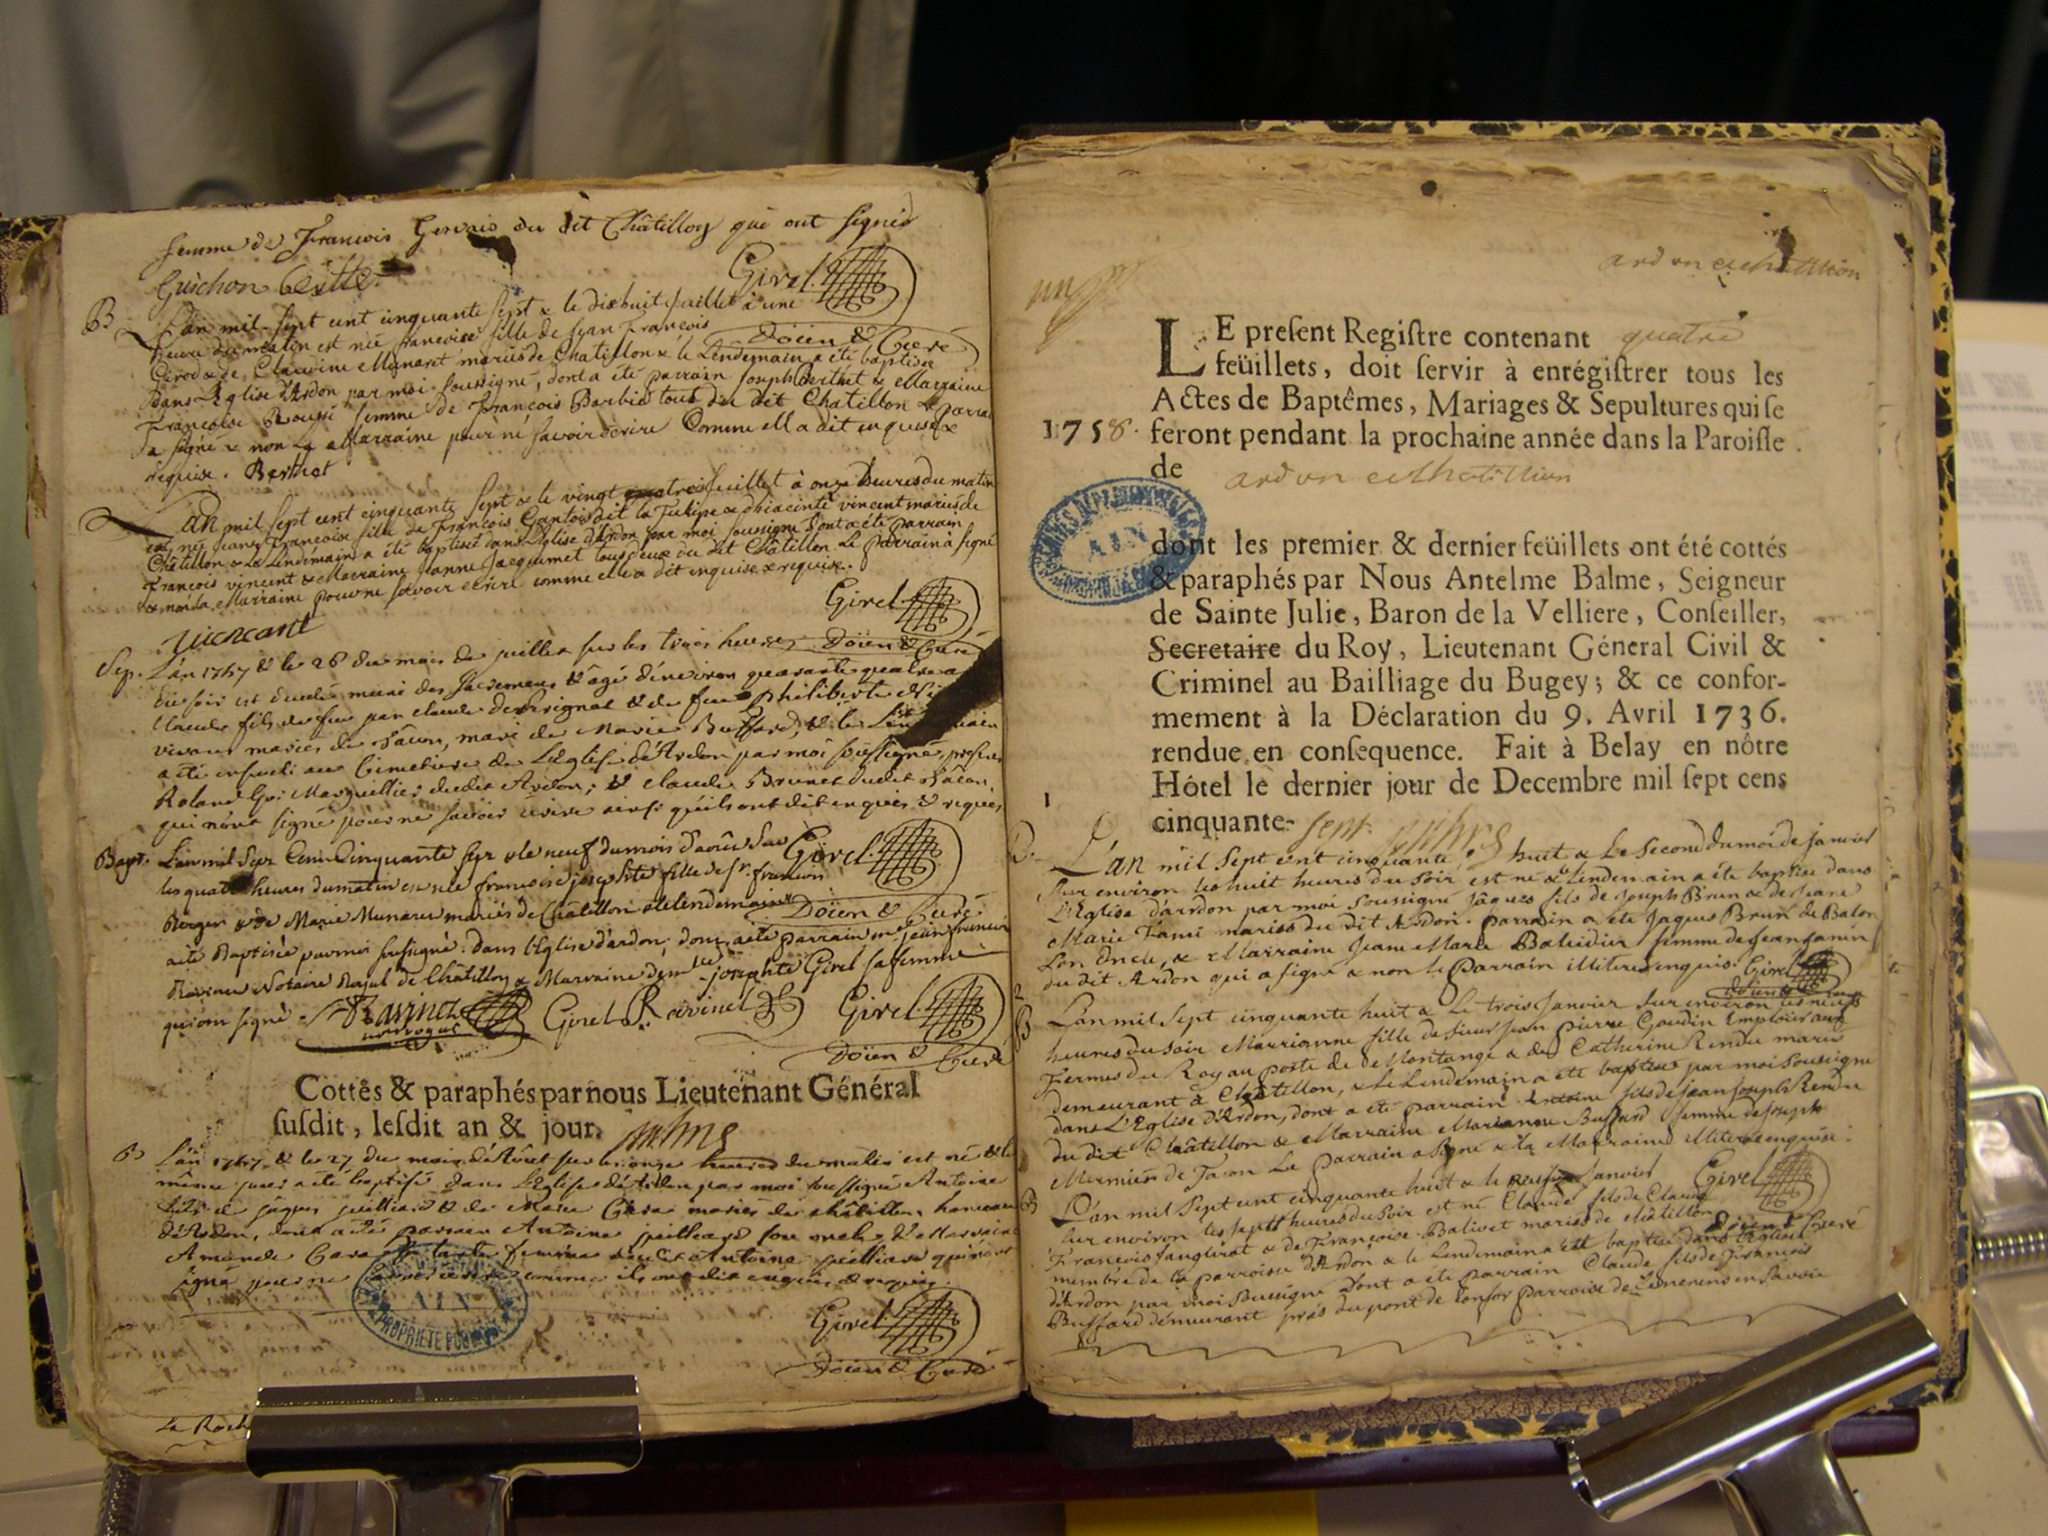 femme de François Gervais du dit Châtillon qui ont signés
Guichon
Girel
Doïen & Curé
B
L'an mil sept cent cinquante sept & le dixhuit juillet à une
heure du matin est née françoise fille de Jean François
de Claudine Munaret mariés de Chatillon & le Lendemain a été baptisée
dans L'Eglise d'Ardon par moi soussigné, dont a été parrain Joseph Berthet & Marraine
Françoise Roussé femme de François Barbié tous du dit Chatillon Le parrain
a signé & non la Marraine pour ne savoir écrire Comme ell a dit enquise &
requise. Berthet
L'an mil sept cent cinquante sept & le vingt trois juillet à onze heures du matin
est née Jeanne Françoise fille de François Gentois dit la Tulipe & d'hiacinte vincent mariés de
Châtillon & Le Lendemain a été baptisée dans L'Eglise d'Ardon par moi soussigné dont a été parrain
François vincent & Marraine Jeanne Jacquemet tous deux du dit Châtillon. Le parrain à signé
& non la Marraine pour ne savoir écrire comme elle a dit enquise & requise.
Girel
Doïen & Curé
Sep. L'an 1757 & le 28 du mois de juillet sur les trois heures
du soir est décédé muni des sacremens & âgé d'environ quarante quatre
Claude fils de feu
vivans mariés de Tacon, mari de Marie Buffard, & le Lendemain
a été enseveli au Cimetiere de L'Eglise d'Ardon par moi soussigné, présens
Roland Marguillier dudit Ardon, & Claude Brunet dudit Tacon
qui n'ont signé pour ne savoir ecrire ainsi qu'ils ont dit enquis & requis
Girel
Doïen & Curé
Bapt. L'an mil sept Cent Cinquante sept & le neuf du mois d'août sur
les quatre heures du matin est née françoise josephte fille de Sr. françois
Berger & de Marie Munaret mariés de Châtillon & le lendemain
a été Baptisée par moi soussigné dans l'Eglise d'ardon, dont a été parrain Me jean francois
Ravinet Notaire Royal de Châtillon & Marraine demlle josephte Girel sa femme
qui ont signé.
Ravinet
Girel Ravinet
Girel
Doïen & Curé
Cottés & paraphés par nous Lieutenant Général
susdit, lesdit an & jour.
B L'an 1757 & le 27 du mois d'Août sur les onze heures du matin est né & le
même jour a été baptisé dans L'Eglise d'Ardon par moi soussigné Antoine
fils de jâques juilliard & de Marie mariés de châtillon hameau
d'Ardon, dont a été parrain Antoine juilliard son oncle & Marraine
femme dudit Antoine juilliard qui n'ont
signé pour ne savoir ecrire comme ils ont dit enquis & requis.
AIN
PROPRIETE PUBLIQUE
Girel
Doïen & Curé
ardon et chatillion
1758.
LE present Registre contenant quatre
feüillets, doit servir à enrégistrer tous les
Actes de Baptêmes, Mariages & Sepultures qui se
feront pendant la prochaine année dans la Paroisse
de ardon et chatillion
ARCHIVES DEPARTEMENTALES
AIN
dont les premier & dernier feüillets ont été cottés
& paraphés par Nous Antelme Balme, Seigneur
de Sainte Julie, Baron de la Velliere, Conseiller,
Secretaire du Roy, Lieutenant Géneral Civil &
Criminel au Bailliage du Bugey; & ce confor-
mement à la Déclaration du 9. Avril 1736.
rendue en consequence. Fait à Belay en nôtre
Hôtel le dernier jour de Decembre mil sept cens
cinquante-sept
1
L'an mil sept cent cinquante huit & Le second du moi de janvier
sur environ les huit heures du soir est né & le Lendemain a été baptisé dans
L'Eglise d'ardon par moi soussigné Jâques fils de Joseph Brun & de Jeane
Marie Fami mariés du dit Ardon. parrain a été Jaques Brun de Balon
son Oncle, & Marraine Jeane Marie femme de Jean Janin
du dit Ardon qui a signé & non le Parrain illiteré enquis. Girel
2
B
L'an mil sept cinquante huit & Le trois Janvier sur environ les neuf
heures du soir Marrianne fille de sieur Jean Pierre Goudin Emploié aux
Fermes du Roy au poste de Montange & de Catherine Rendu mariés
demeurant à Châtillon, & Le Lendemain a été baptisée par moi soussigné
dans L'Eglise d'Ardon, dont a été parrain Antoine fils de Jean Joseph Rendu
du dit Châtillon & Marraine Marianne Buffard femme de Joseph
Mermier de Tacon Le parrain a signé & la Marraine illiterée enquise.
Girel
B
L'an mil sept cent cinquante huit & le Janvier
sur environ les sept heures du soir est né Claude fils de Claude
François & de Françoise Balivet mariés de Châtillon
Doïen & Curé
membre de la parroisse d'Ardon & le Lendemain a été baptisé dans L'Eglise
d'Ardon par moi Sussigné dont a été parrain Claude fils de François
Buffard demeurant près du pont de Confor parroise de en Savoie